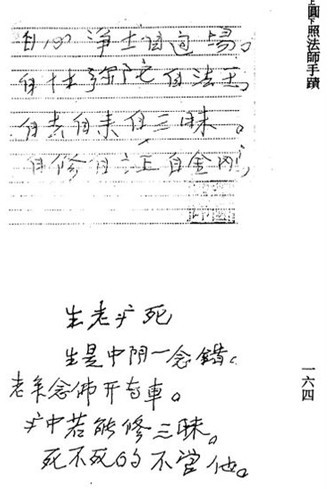 上圓下照法師手蹟
自心淨土自道場。
自性弥陀自法王,
自去自来任三昧。
自修自证自金刚,
生老疒死
生是中阴一念錯。
老来念佛开专車。
疒中若能修三昧。
死不死的不管他。
一六四